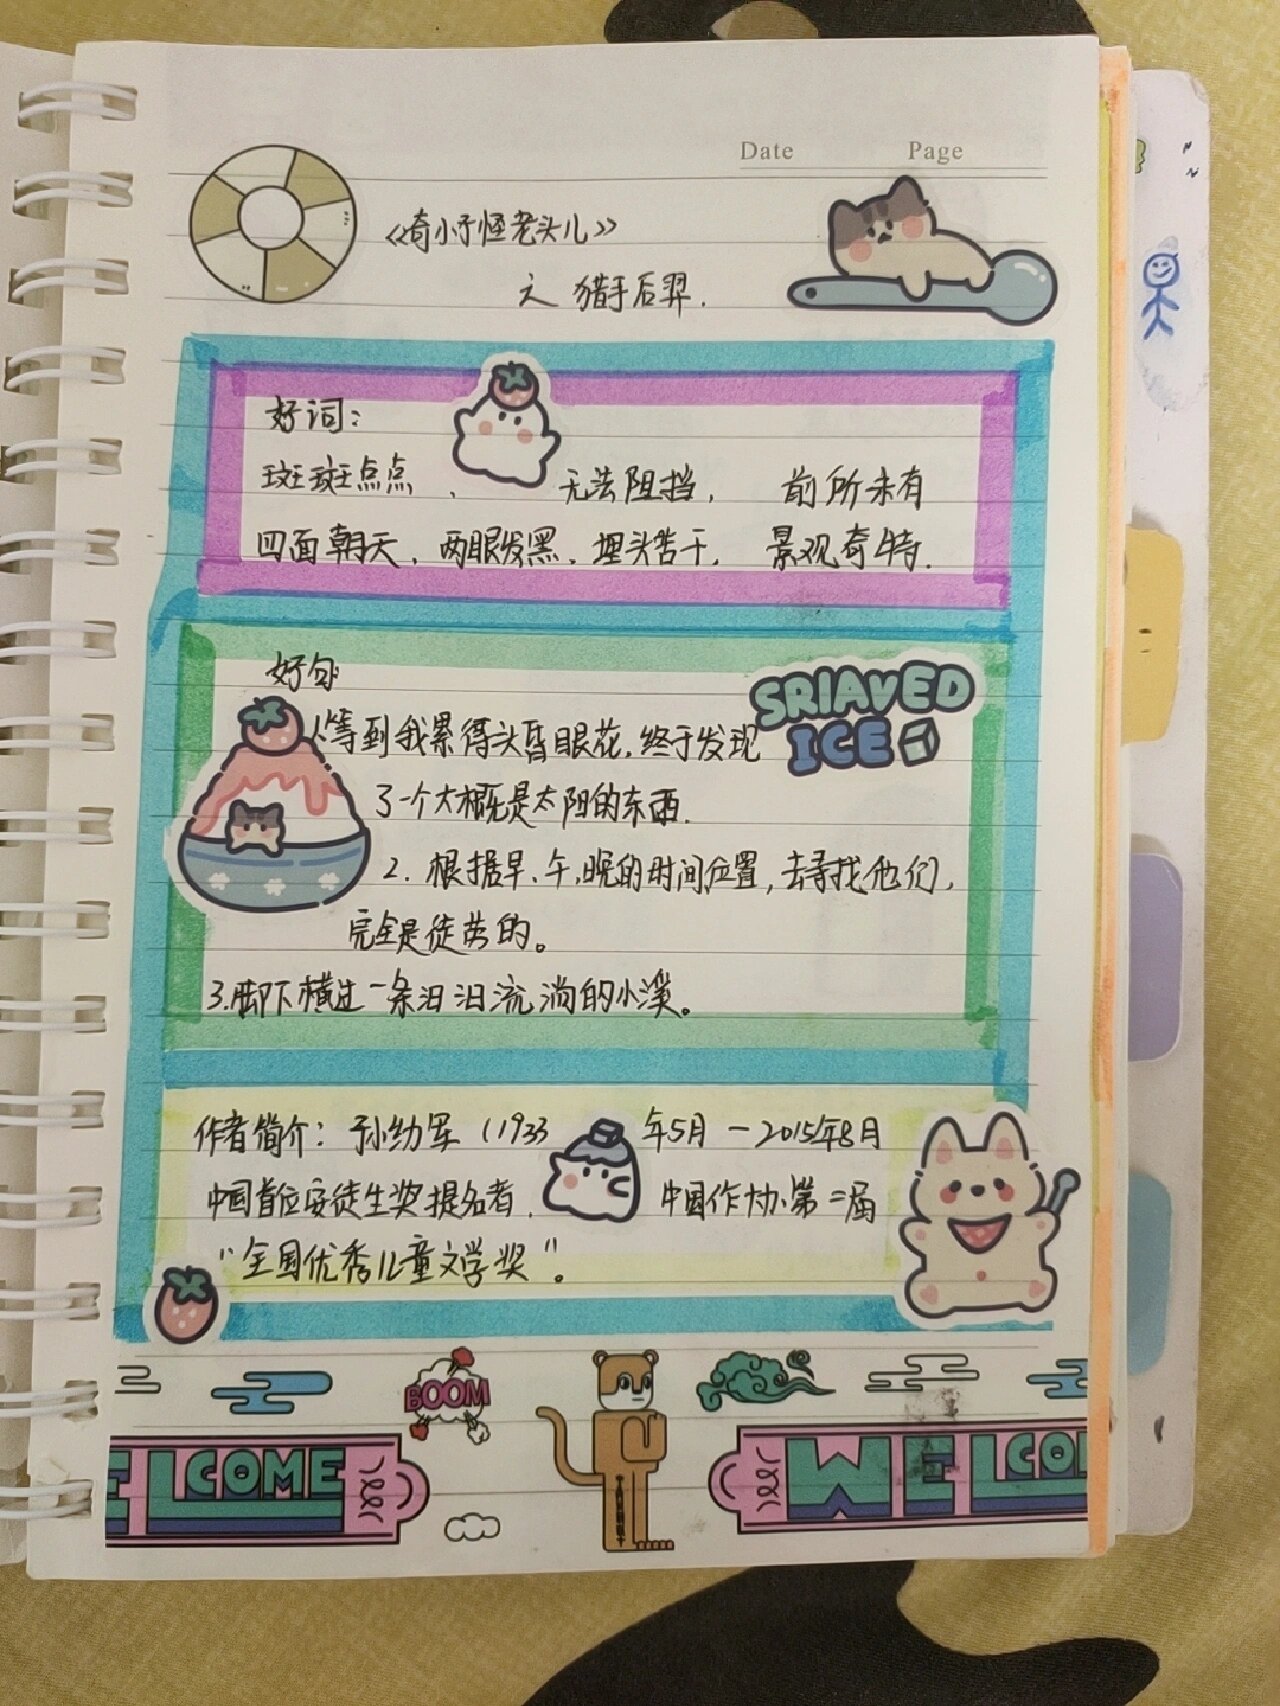 Date Page
《奇小子怪老头儿》
之 猎手后羿.
好词：
斑斑点点、 无法阻挡， 前所未有
四面朝天、两眼发黑、埋头苦干， 景观奇特.
好句
SRIAVED
ICE
1.等到我累得头昏眼花,终于发现
了一个大概是太阳的东西.
2. 根据早、午、晚的时间位置,去寻找他们,
完全是徒劳的。
3.脚下横过一条汩汩流淌的小溪。
作者简介：孙幼军（1933 年5月－2015年8月
中国首位安徒生奖提名者. 中国作协第二届
“全国优秀儿童文学奖”。
BOOM
ELCOME
WELCO